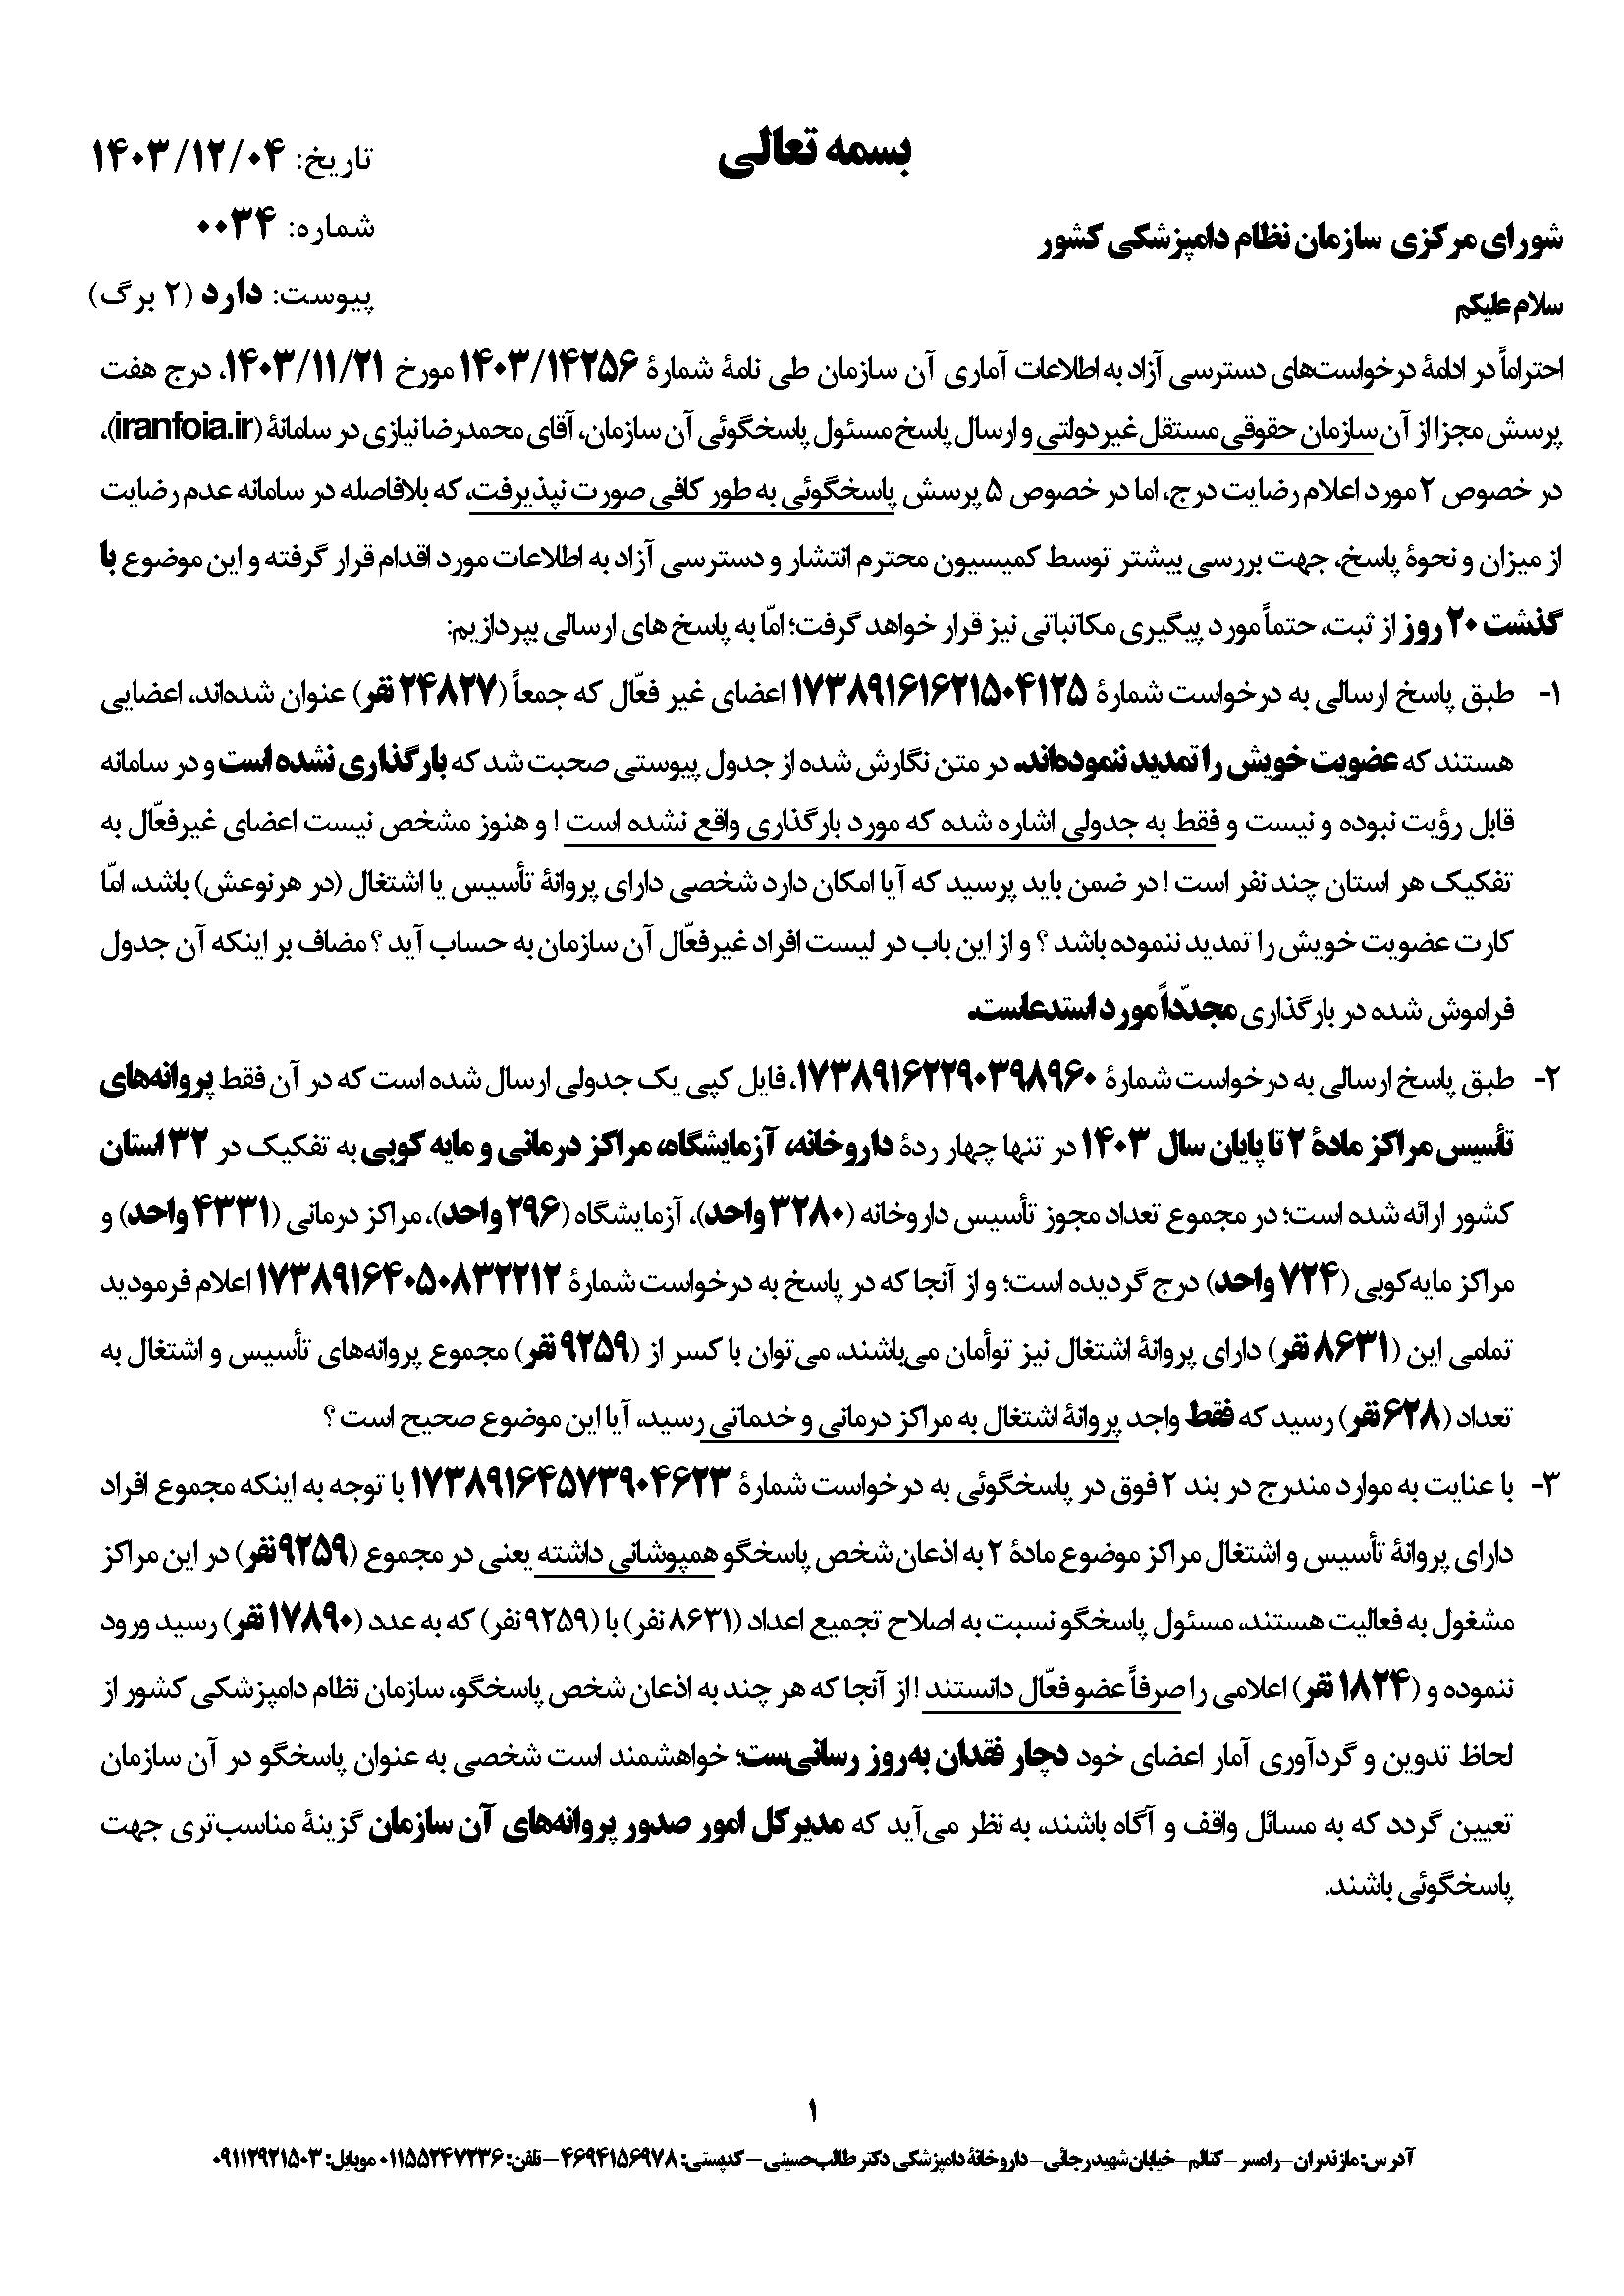 بسمه تعالی
تاریخ: ۱۴۰۳/۱۲/۰۴
شماره: ۰۰۳۴
پیوست: دارد (۲ برگ)
شورای مرکزی سازمان نظام دامپزشکی کشور
سلام علیکم
احتراماً در ادامهٔ درخواست‌های دسترسی آزاد به اطلاعات آماری آن سازمان طی نامهٔ شمارهٔ ۱۴۰۳/۱۴۲۵۶ مورخ ۱۴۰۳/۱۱/۲۱، درج هفت
پرسش مجزا از آن سازمان حقوقی مستقل غیر دولتی و ارسال پاسخ مسئول پاسخگوئی آن سازمان، آقای محمدرضا نیازی در سامانهٔ (iranfoia.ir)،
در خصوص ۲ مورد اعلام رضایت درج، اما در خصوص ۵ پرسش پاسخگوئی به طور کافی صورت نپذیرفت، که بلافاصله در سامانه عدم رضایت
از میزان و نحوهٔ پاسخ، جهت بررسی بیشتر توسط کمیسیون محترم انتشار و دسترسی آزاد به اطلاعات مورد اقدام قرار گرفته و این موضوع با
گذشت ۲۰ روز از ثبت، حتماً مورد پیگیری مکاتباتی نیز قرار خواهد گرفت؛ امّا به پاسخ های ارسالی بپردازیم:
۱- طبق پاسخ ارسالی به درخواست شمارهٔ ۱۷۳۸۹۱۶۱۶۲۱۵۰۴۱۲۵ اعضای غیر فعّال که جمعاً (۲۴۸۲۷ نفر) عنوان شده‌اند، اعضایی
هستند که عضویت خویش را تمدید ننموده‌اند. در متن نگارش شده از جدول پیوستی صحبت شد که بارگذاری نشده است و در سامانه
قابل رؤیت نبوده و نیست و فقط به جدولی اشاره شده که مورد بارگذاری واقع نشده است ! و هنوز مشخص نیست اعضای غیرفعّال به
تفکیک هر استان چند نفر است ! در ضمن باید پرسید که آیا امکان دارد شخصی دارای پروانهٔ تأسیس یا اشتغال (در هرنوعش) باشد، امّا
کارت عضویت خویش را تمدید ننموده باشد ؟ و از این باب در لیست افراد غیرفعّال آن سازمان به حساب آید ؟ مضاف بر اینکه آن جدول
فراموش شده در بارگذاری مجدّداً مورد استدعاست.
۲- طبق پاسخ ارسالی به درخواست شمارهٔ ۱۷۳۸۹۱۶۲۲۹۰۳۹۸۹۶۰، فایل کپی یک جدولی ارسال شده است که در آن فقط پروانه‌های
تأسیس مراکز مادهٔ ۲ تا پایان سال ۱۴۰۳ در تنها چهار ردهٔ داروخانه، آزمایشگاه، مراکز درمانی و مایه کوبی به تفکیک در ۳۲ استان
کشور ارائه شده است؛ در مجموع تعداد مجوز تأسیس داروخانه (۳۲۸۰ واحد)، آزمایشگاه (۲۹۶ واحد)، مراکز درمانی (۴۳۳۱ واحد) و
مراکز مایه‌کوبی (۷۲۴ واحد) درج گردیده است؛ و از آنجا که در پاسخ به درخواست شمارهٔ ۱۷۳۸۹۱۶۴۰۵۰۸۳۲۲۱۲ اعلام فرمودید
تمامی این (۸۶۳۱ نفر) دارای پروانهٔ اشتغال نیز توأمان می‌باشند، می‌توان با کسر از (۹۲۵۹ نفر) مجموع پروانه‌های تأسیس و اشتغال به
تعداد (۶۲۸ نفر) رسید که فقط واجد پروانهٔ اشتغال به مراکز درمانی و خدماتی رسید، آیا این موضوع صحیح است ؟
۳- با عنایت به موارد مندرج در بند ۲ فوق در پاسخگوئی به درخواست شمارهٔ ۱۷۳۸۹۱۶۴۵۷۳۹۰۴۶۲۳ با توجه به اینکه مجموع افراد
دارای پروانهٔ تأسیس و اشتغال مراکز موضوع مادهٔ ۲ به اذعان شخص پاسخگو همپوشانی داشته یعنی در مجموع (۹۲۵۹ نفر) در این مراکز
مشغول به فعالیت هستند، مسئول پاسخگو نسبت به اصلاح تجمیع اعداد (۸۶۳۱ نفر) با (۹۲۵۹ نفر) که به عدد (۱۷۸۹۰ نفر) رسید ورود
ننموده و (۱۸۲۴ نفر) اعلامی را صرفاً عضو فعّال دانستند ! از آنجا که هر چند به اذعان شخص پاسخگو، سازمان نظام دامپزشکی کشور از
لحاظ تدوین و گردآوری آمار اعضای خود دچار فقدان به‌روز رسانی‌ست؛ خواهشمند است شخصی به عنوان پاسخگو در آن سازمان
تعیین گردد که به مسائل واقف و آگاه باشند، به نظر می‌آید که مدیرکل امور صدور پروانه‌های آن سازمان گزینهٔ مناسب‌تری جهت
پاسخگوئی باشند.
۱
آدرس: مازندران – رامسر – کتالم – خیابان شهید رجائی – داروخانهٔ دامپزشکی دکتر طالب حسینی – کدپستی: ۴۶۹۴۱۵۶۹۷۸ – تلفن: ۰۱۱۵۵۲۴۷۲۳۶ موبایل: ۰۹۱۱۲۹۲۱۵۰۳